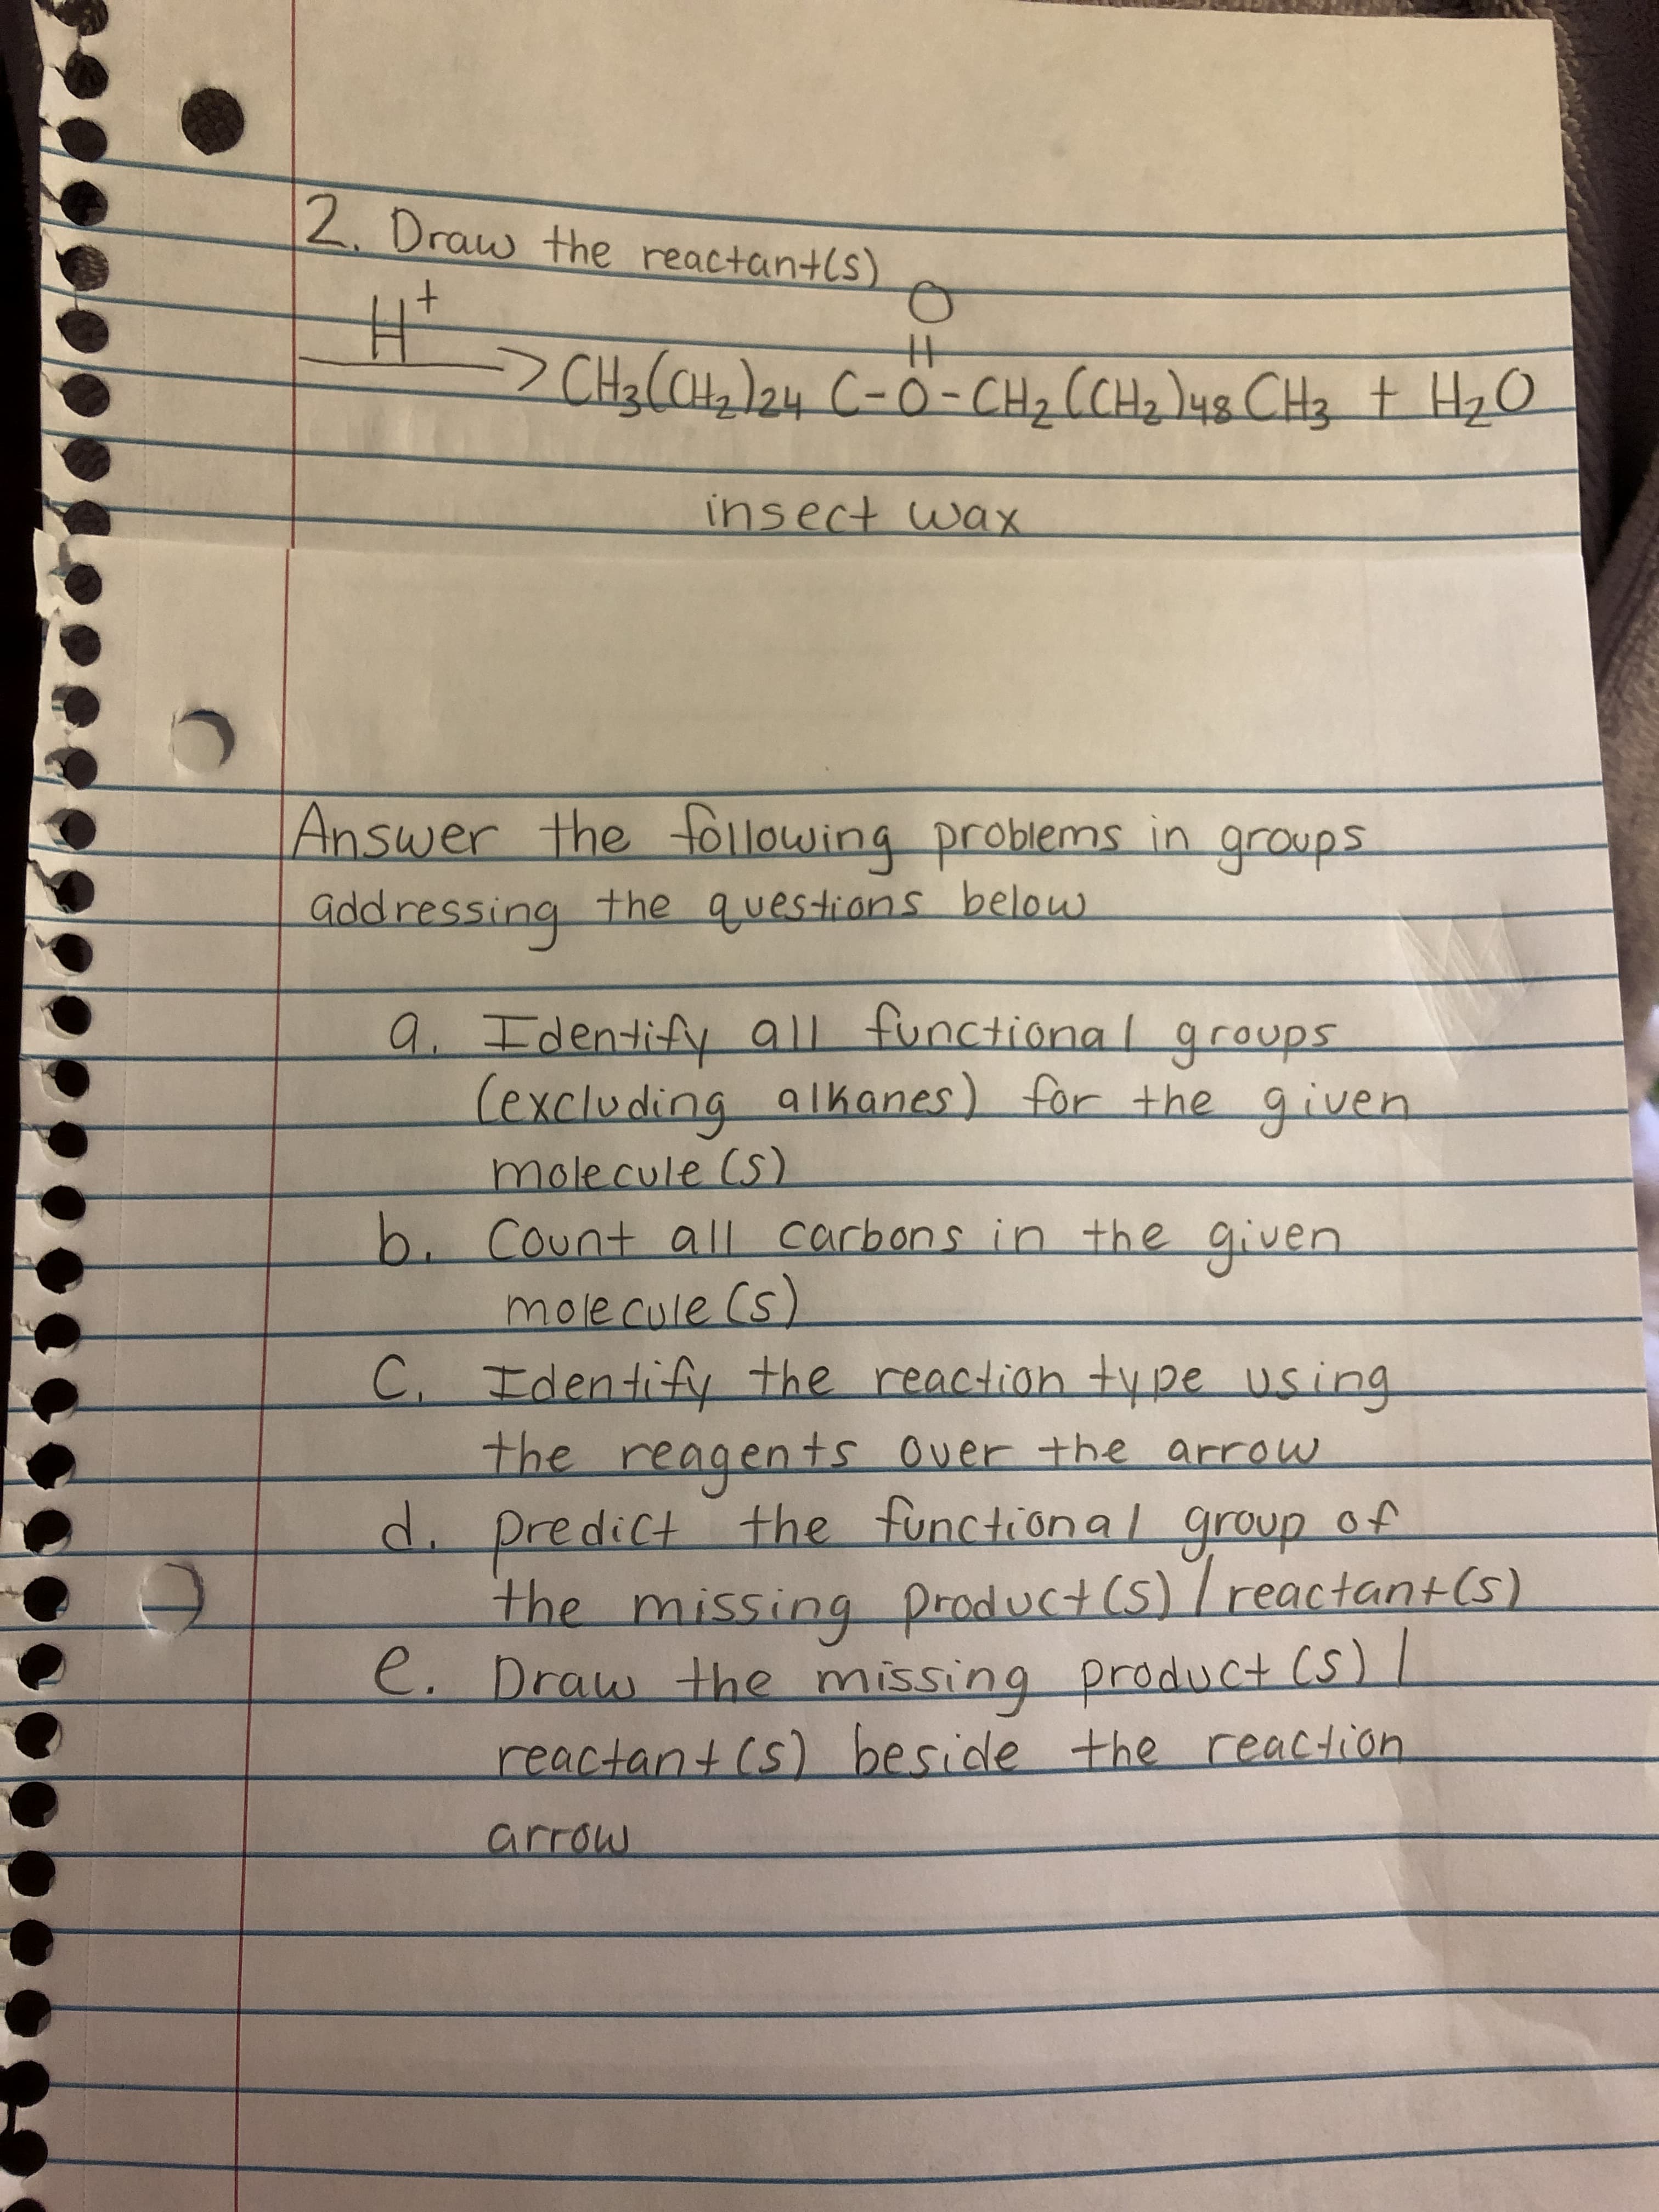 2. Draw the reactant(s)
O
H⁺ ||
⟶ CH₃(CH₂)₂₄ C-O-CH₂(CH₂)₄₈CH₃ + H₂O
insect wax
Answer the following problems in groups
addressing the questions below
a. Identify all functional groups
(excluding alkanes) for the given
molecule(s)
b. Count all carbons in the given
molecule(s)
C. Identify the reaction type using
the reagents over the arrow
d. predict the functional group of
the missing product(s)/reactant(s)
e. Draw the missing product(s)/
reactant(s) beside the reaction
arrow